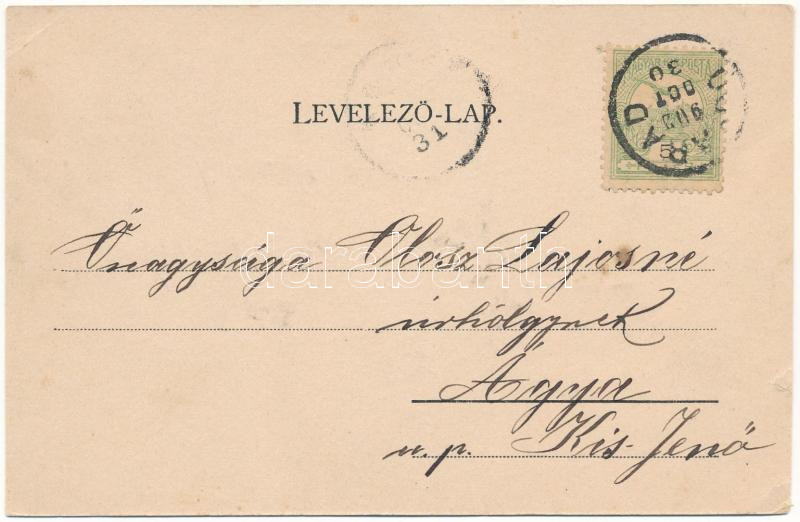 LEVELEZŐ-LAP.
MAGYAR KIR. POSTA
5
OCT
30
31
Őnagysága Olosz Lajosné
úrhölgynek
Ágya
u. p. Kis-Jenő
darabanth